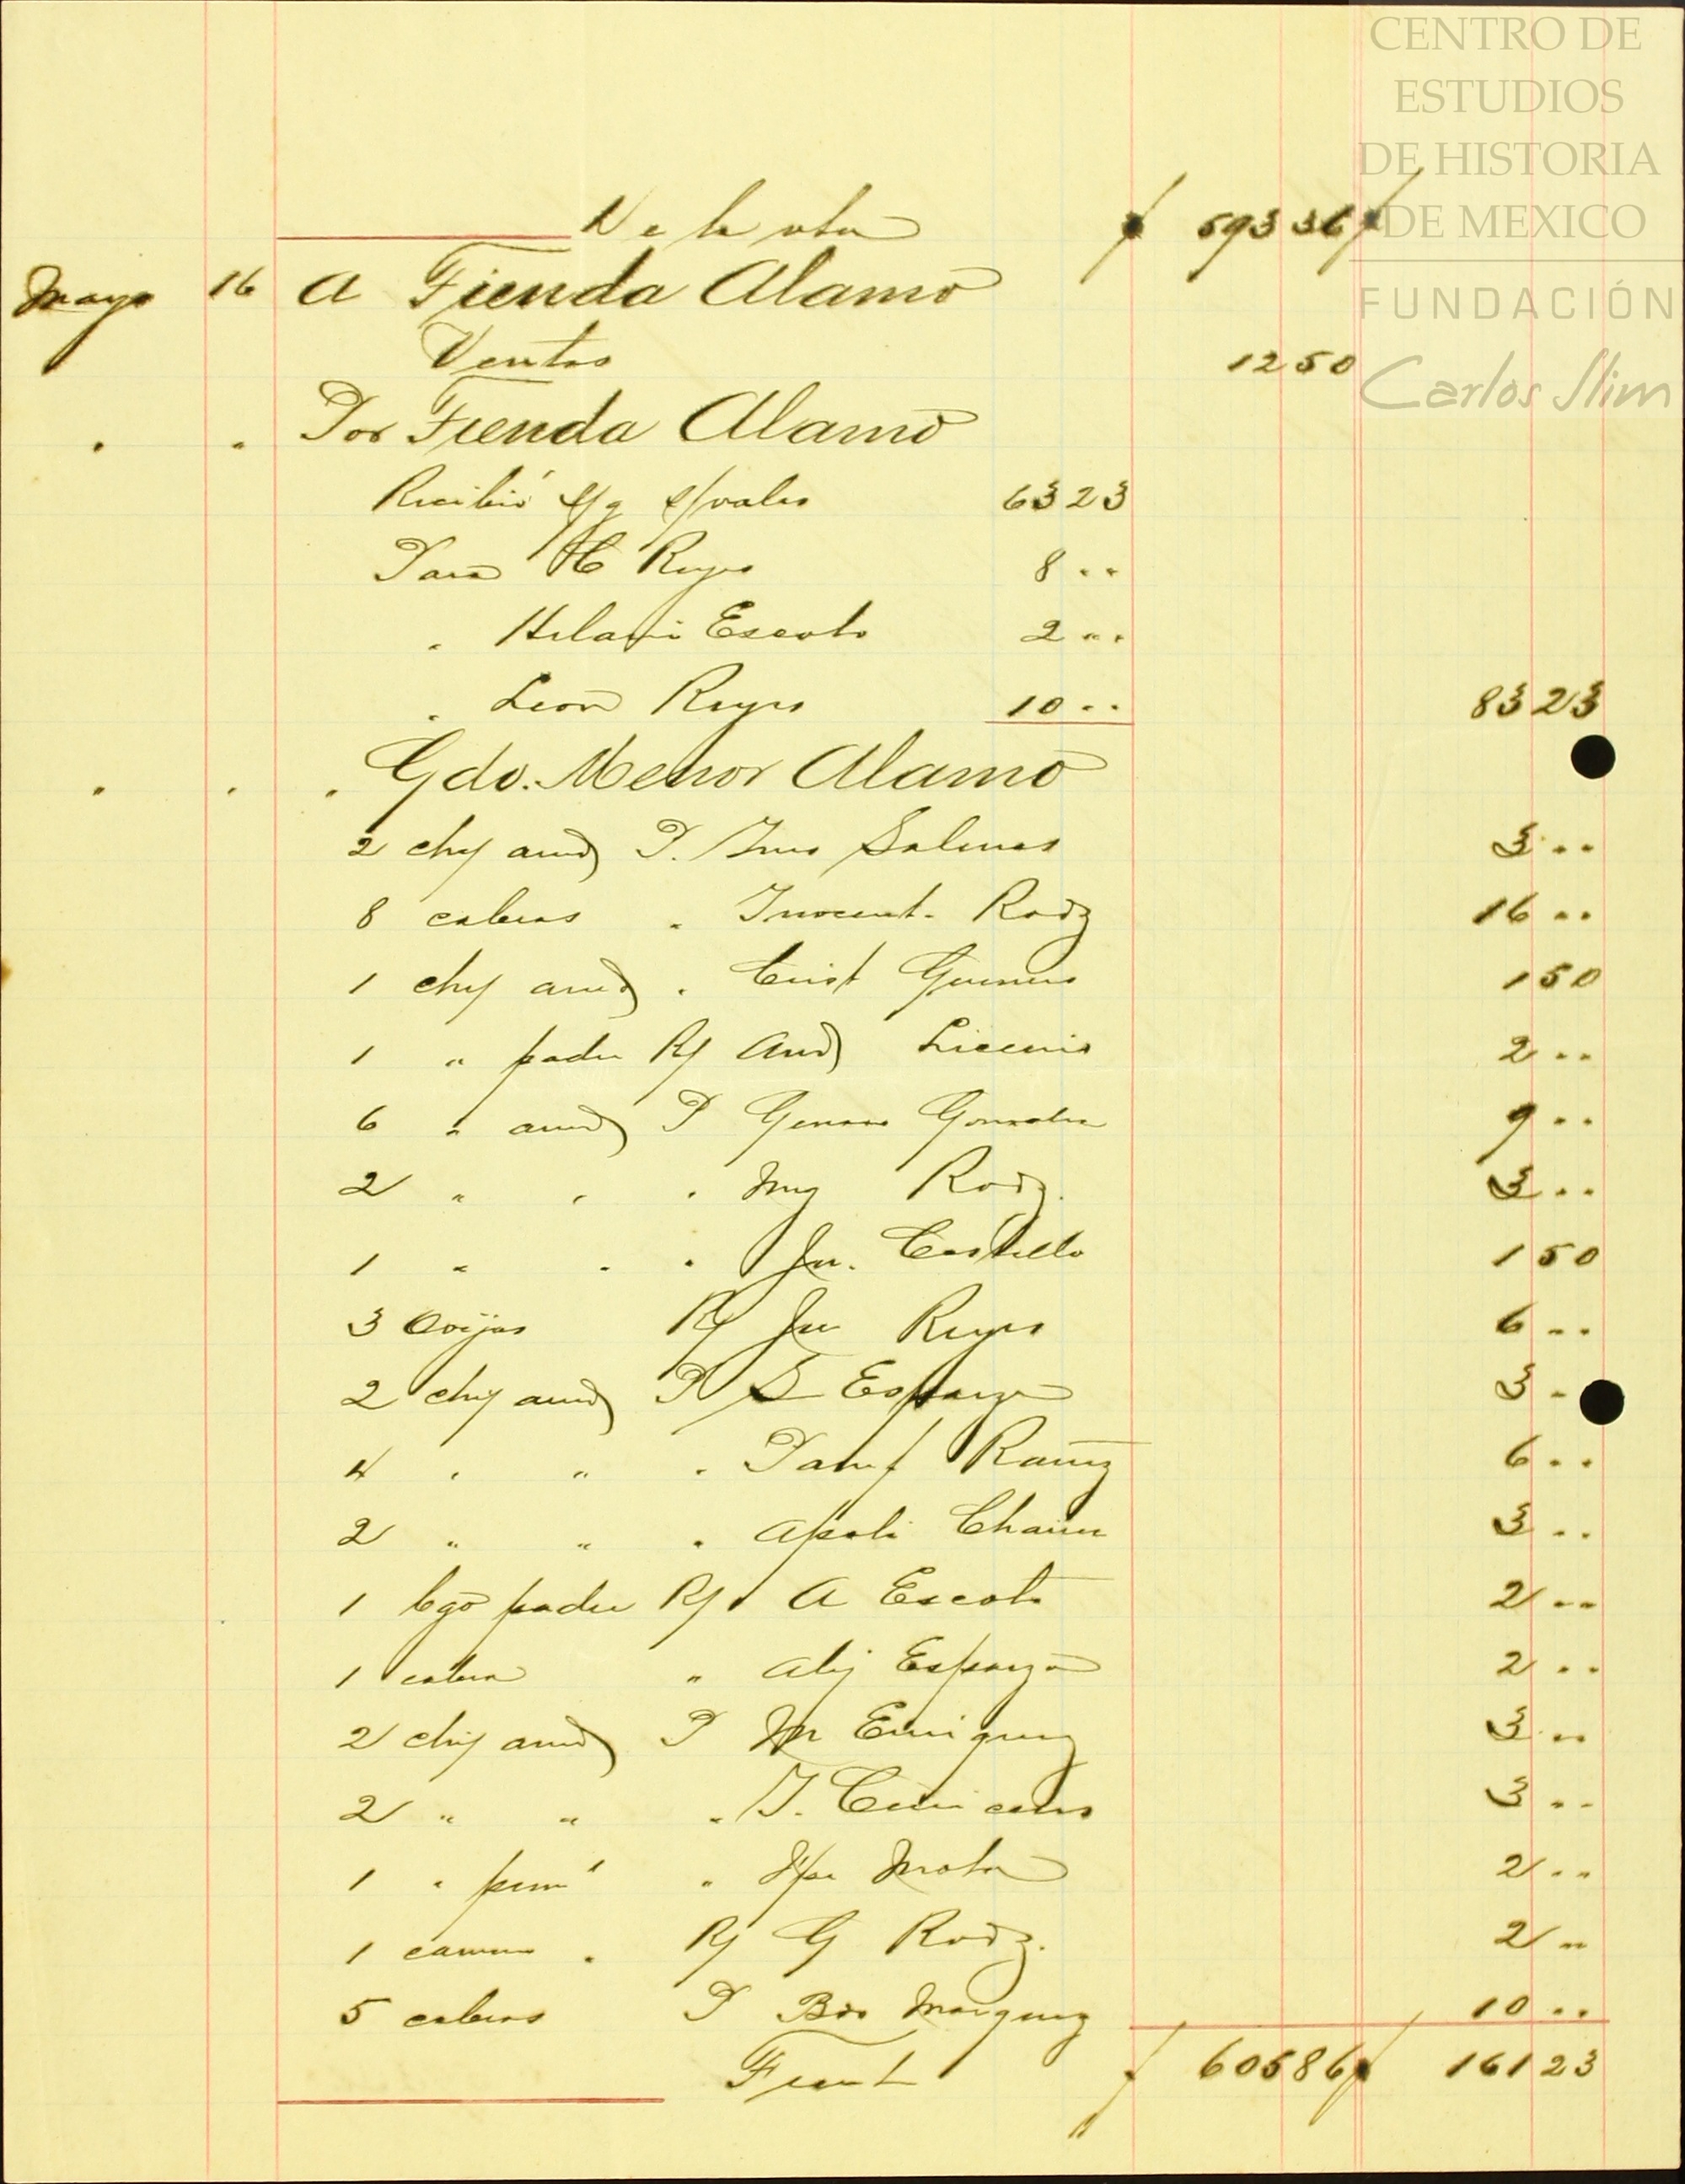 CENTRO DE
ESTUDIOS
DE HISTORIA
DE MEXICO
FUNDACIÓN
Carlos Slim
De la vta $ 593 36 $
Mayo 16 A Tienda Alamo
Ventas 12 50
" " Por Tienda Alamo
Recibió s/vales 63 23
Para H Reyes 8 ""
" Hilari Escoto 2 ""
" León Reyes 10 "" 83 23
" " " Gdo. Menor Alamo
2 chiv and P. Salinas 3 ""
8 cabras " Inocent. Rodz 16 ""
1 chiv and " Crist 1 50
1 " padre R/ And Licenio 2 ""
6 " and P Genaro Gonzalez 9 ""
2 " " " Mig Rodz. 3 ""
1 " " " Jn. Castillo 1 50
3 Ovejas R/ Jn Reyes 6 ""
2 chiv and P S Esparza 3 "
4 " " " Panf Ramz 6 ""
2 " " " Apoli 3 ""
1 bgo padre R/ A Escoto 2 ""
1 cabra " Alej Esparza 2 ""
2 chiv and P M Enriquez 3 ""
2 " " " T. Ceniceros 3 ""
1 " prim " Mota 2 ""
1 carnero " R/ G Rodz. 2 ""
5 cabras P Marquez 10 ""
Frente $ 605 86 $ 161 23